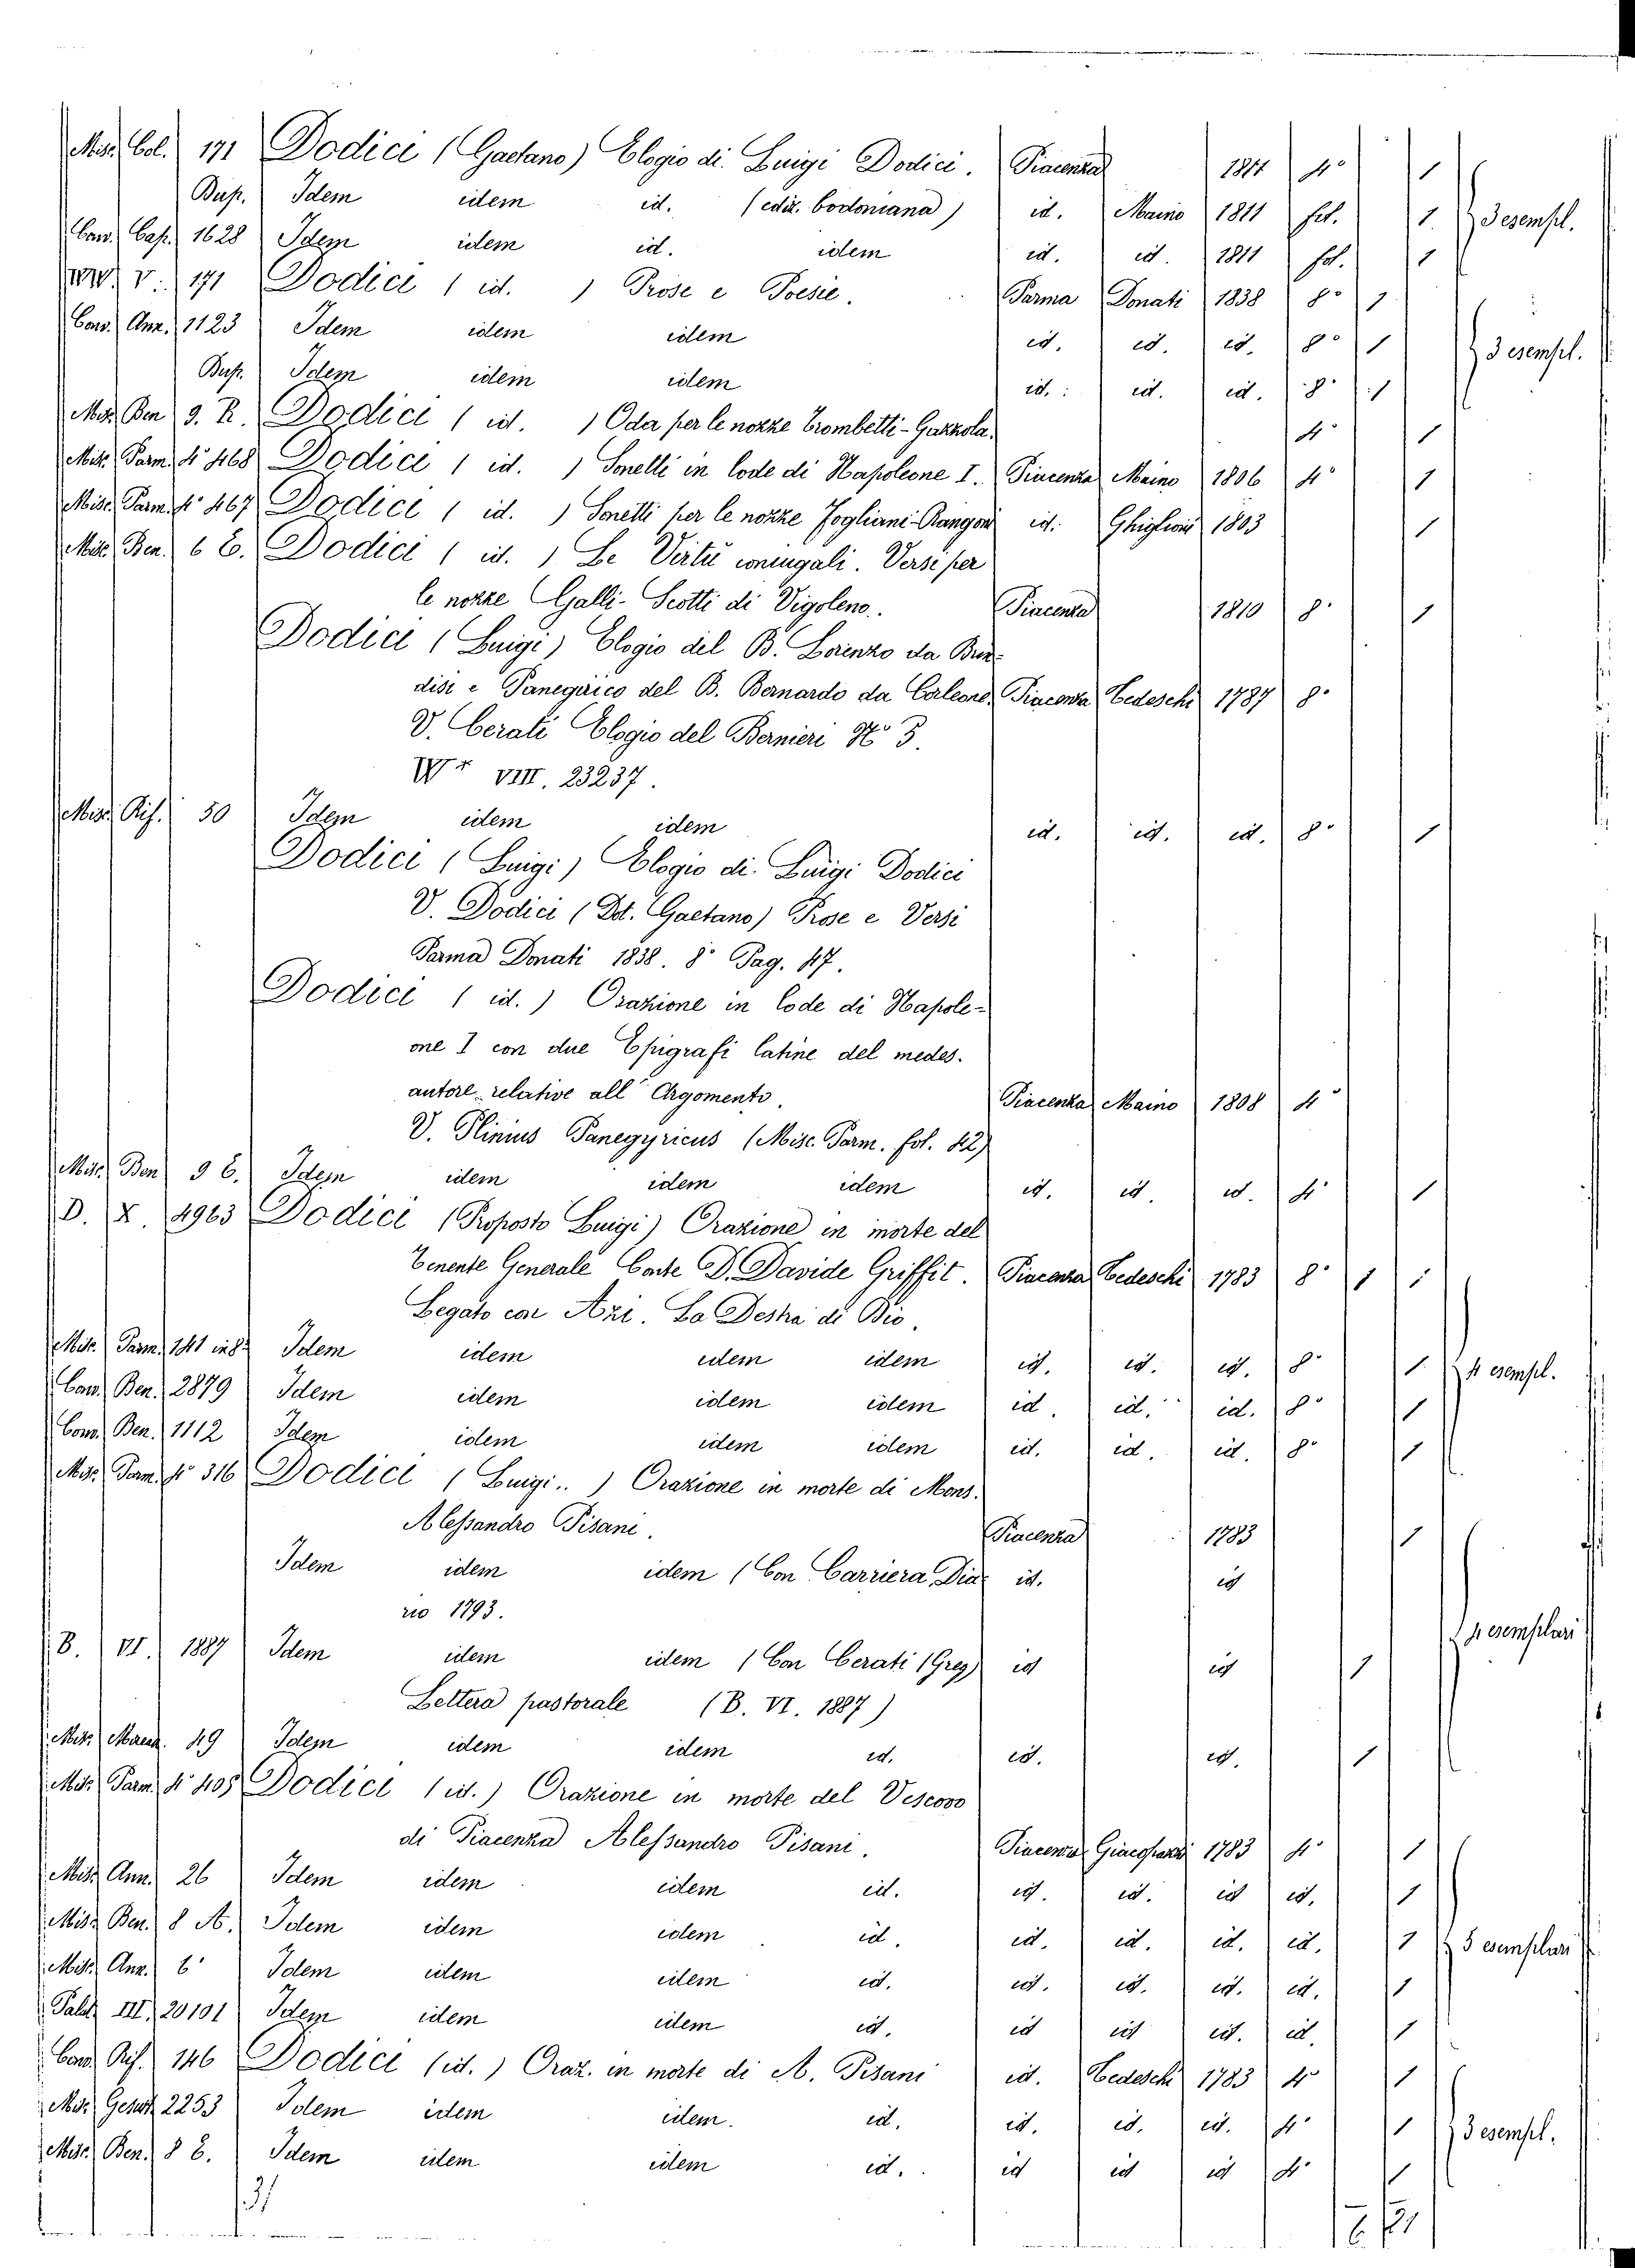 Misc. Col. 171 Dodici (Gaetano) Elogio di Luigi Dodici. Piacenza 1811 4° 1
Busp. Idem idem id. (ediz. bodoniana) id. Maino 1811 fol. 1 3 esempl.
Conv. Cap. 1628 Idem idem id. idem id. id. 1811 fol. 1
V. 171 Dodici (id.) Prose e Poesie. Parma Donati 1838 8° 1
Conv. Ann. 1123 Idem idem idem id. id. id. 8° 1 3 esempl.
Busp. Idem idem idem id. id. id. 8° 1
Misc. Ben 9. R. Dodici (id.) Oda per le nozze Trombetti-Gazzola. 4° 1
Misc. Parm. 4° 468 Dodici (id.) Sonetti in lode di Napoleone I. Piacenza Maino 1806 4° 1
Misc. Parm. 4° 467 Dodici (id.) Sonetti per le nozze Fogliani-Rangoni id. Ghiglioni 1803 1
Misc. Ben. 6 C. Dodici (id.) Le Virtù coniugali. Versi per
le nozze Galli-Scotti di Vigoleno. Piacenza 1810 8° 1
Dodici (Luigi) Elogio del B. Lorenzo da Brin-
disi e Panegirico del B. Bernardo da Corleone. Piacenza Tedeschi 1787 8°
V. Cerati Elogio del Bernieri N° 3.
W* VIII. 23237.
Misc. Rif. 50 Idem idem idem id. id. id. 8° 1
Dodici (Luigi) Elogio di Luigi Dodici
V. Dodici (Dt. Gaetano) Prose e Versi
Parma Donati 1838. 8° Pag. 47.
Dodici (id.) Orazione in lode di Napole-
one I con due Epigrafi latine del medes.
autore relative all'Argomento. Piacenza Maino 1808 4°
V. Plinius Panegyricus (Misc. Parm. fol. 42)
Misc. Ben 9 C. Idem idem idem idem id. id. id. 4° 1
D. X. 4963 Dodici (Proposto Luigi) Orazione in morte del
Tenente Generale Conte D. Davide Griffit. Piacenza Tedeschi 1783 8° 1 1
Legato con Azi. La Destra di Dio.
Misc. Parm. 141 in 8° Idem idem idem idem id. id. id. 8° 1 4 esempl.
Conv. Ben. 2879 Idem idem idem idem id. id. id. 8° 1
Conv. Ben. 1112 Idem idem idem idem id. id. id. 8° 1
Misc. Parm. 4° 316 Dodici (Luigi..) Orazione in morte di Mons.
Alessandro Pisani. Piacenza 1783 1
Idem idem idem (Con Carriera, Dia- id. id
rio 1793.
B. VI. 1887 Idem idem idem (Con Cerati (Greg) id id 1 4 esemplari
Lettera pastorale (B. VI. 1887)
Misc. 49 Idem idem idem id. id. id. 1
Misc. Parm. 4° 405 Dodici (id.) Orazione in morte del Vescovo
di Piacenza Alessandro Pisani. Piacenza Giacopazzi 1783 4° 1
Misc. Ann. 26 Idem idem idem id. id. id. id id. 1
Misc. Ben. 8 A. Idem idem idem id. id. id. id. id. 1 5 esemplari
Misc. Ann. 6 Idem idem idem id. id. id. id. id. 1
Palat. III. 20101 Idem idem idem id. id id id. id. 1
Conv. Rif. 146 Dodici (id.) Oraz. in morte di A. Pisani id. Tedeschi 1783 4° 1
Misc. Gesuit. 2253 Idem idem idem. id. id. id. id. 4° 1 3 esempl.
Misc. Ben. 8 C. Idem idem idem id. id id id 4° 1
31